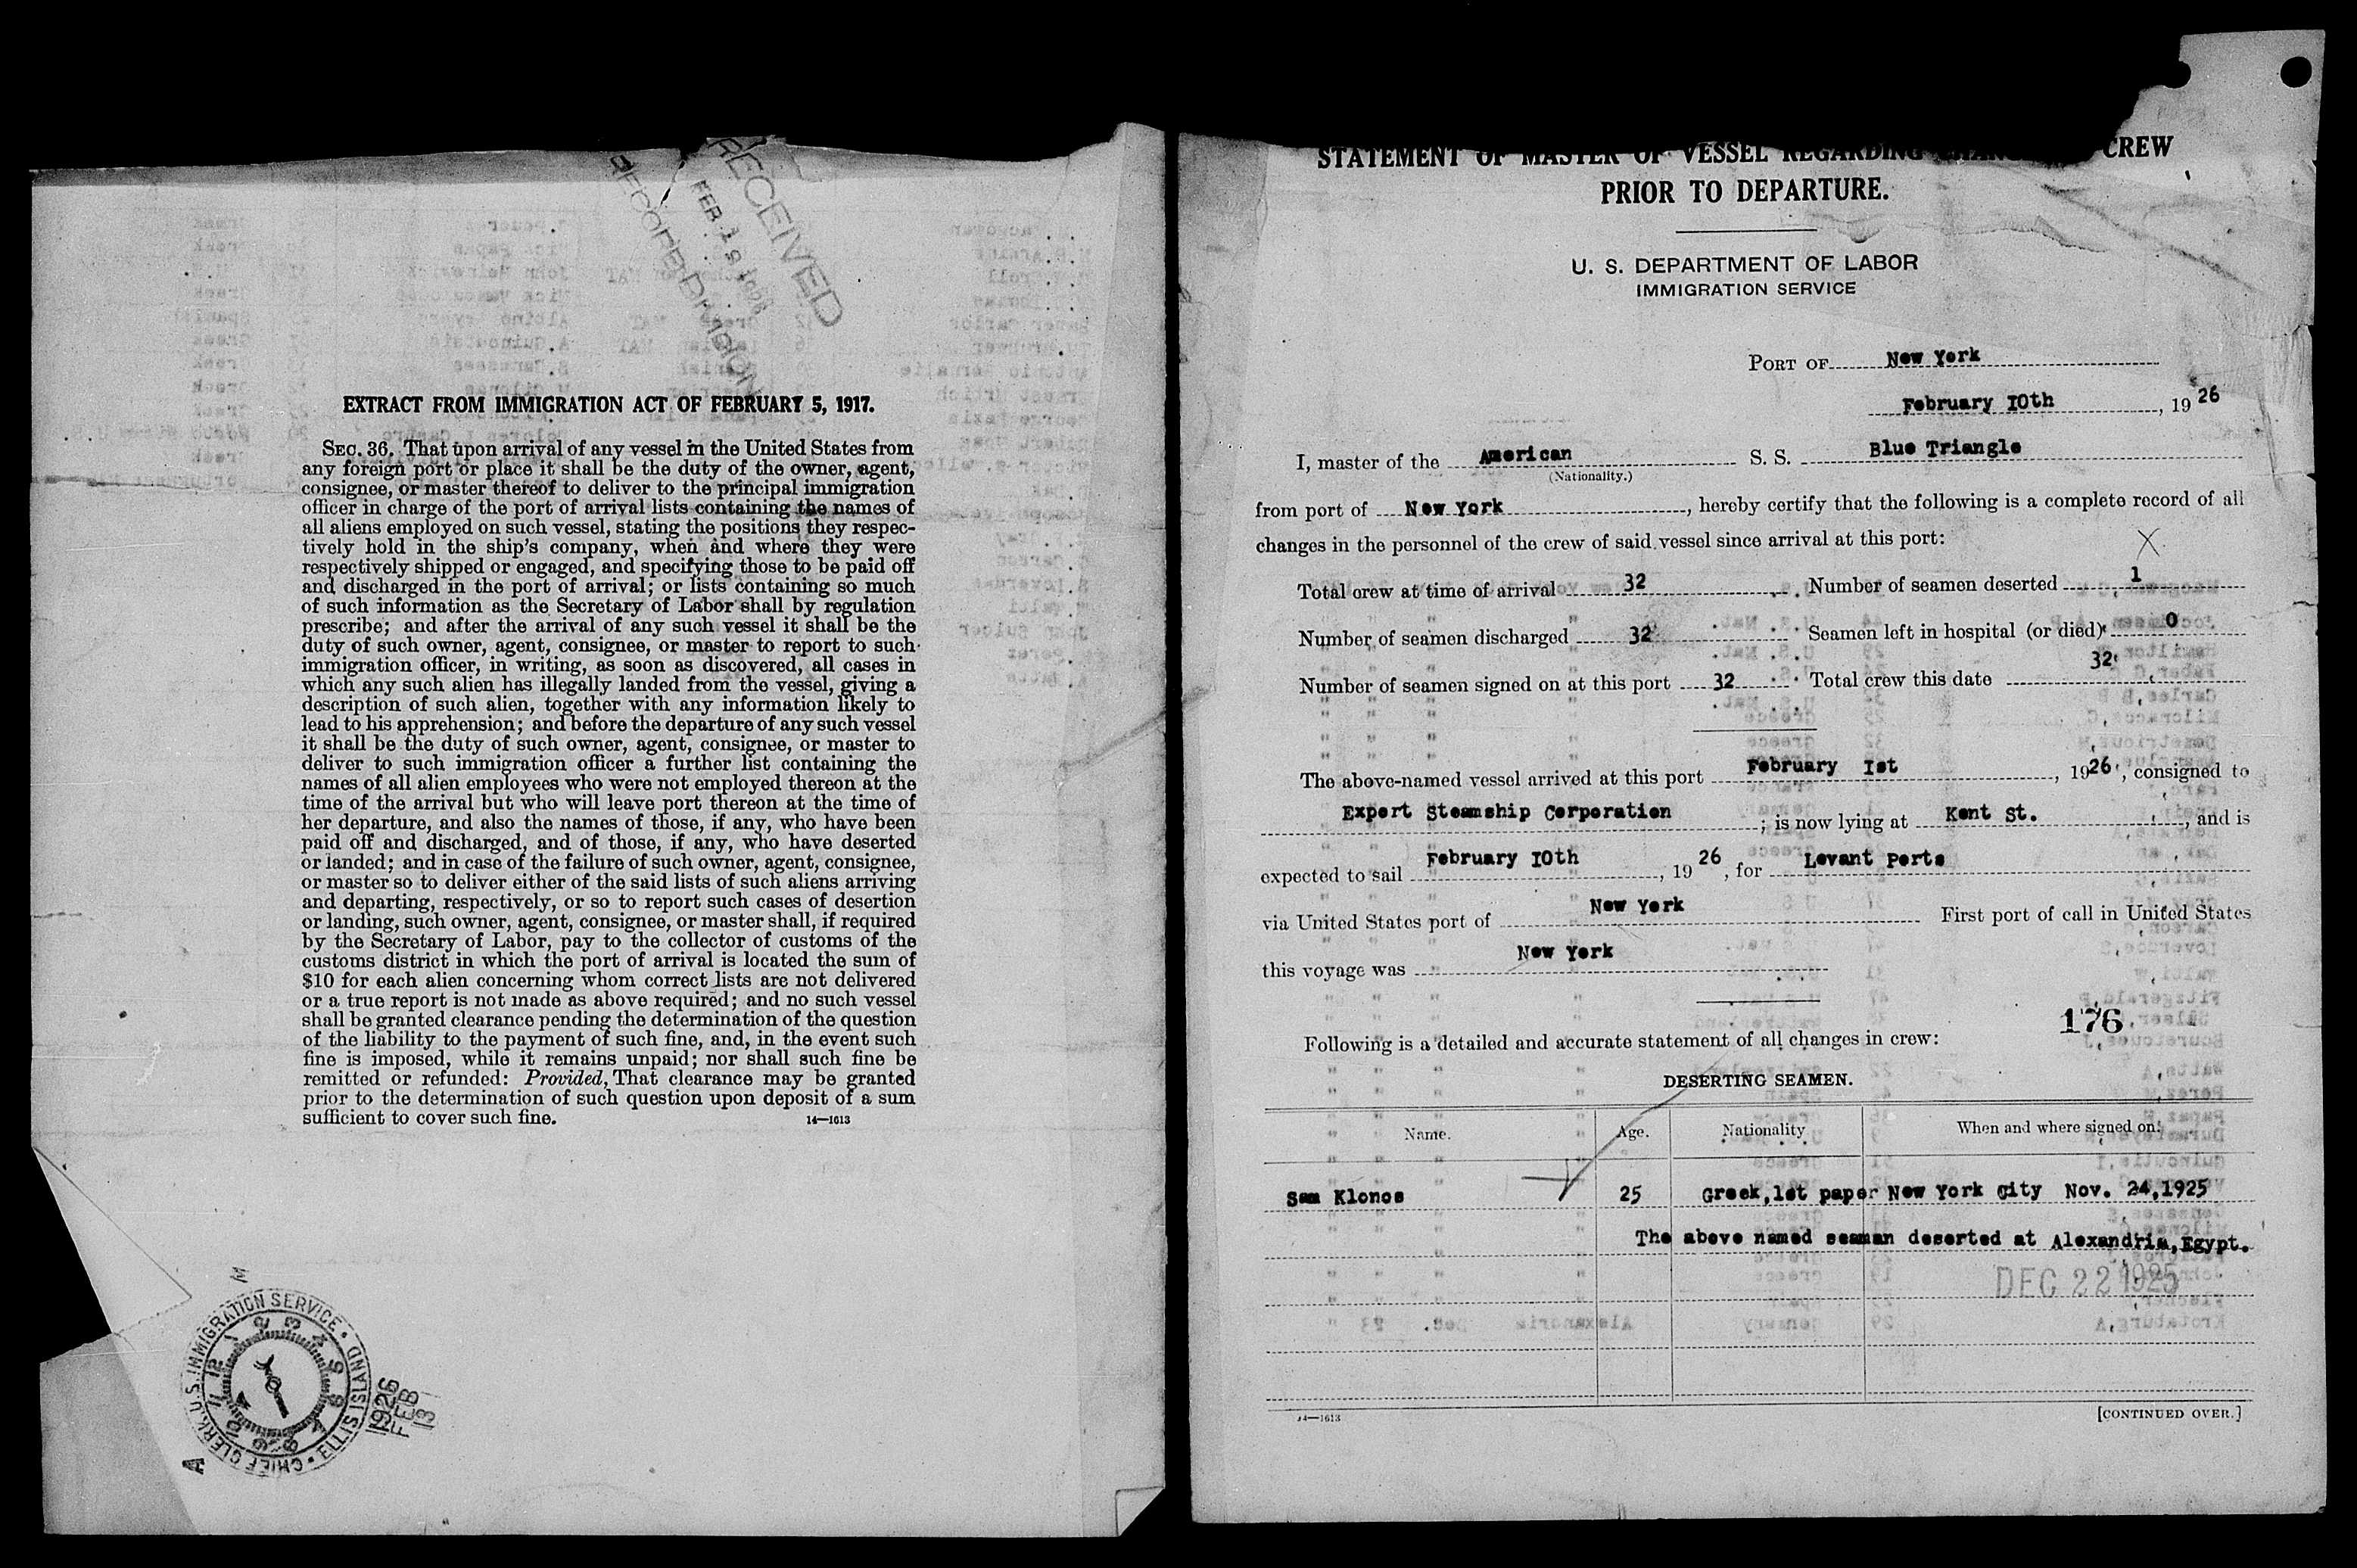 RECEIVED
FEB 1 1926
RECORD DIVISION
EXTRACT FROM IMMIGRATION ACT OF FEBRUARY 5, 1917.
SEC. 36. That upon arrival of any vessel in the United States from
any foreign port or place it shall be the duty of the owner, agent,
consignee, or master thereof to deliver to the principal immigration
officer in charge of the port of arrival lists containing the names of
all aliens employed on such vessel, stating the positions they respec-
tively hold in the ship's company, when and where they were
respectively shipped or engaged, and specifying those to be paid off
and discharged in the port of arrival; or lists containing so much
of such information as the Secretary of Labor shall by regulation
prescribe; and after the arrival of any such vessel it shall be the
duty of such owner, agent, consignee, or master to report to such
immigration officer, in writing, as soon as discovered, all cases in
which any such alien has illegally landed from the vessel, giving a
description of such alien, together with any information likely to
lead to his apprehension; and before the departure of any such vessel
it shall be the duty of such owner, agent, consignee, or master to
deliver to such immigration officer a further list containing the
names of all alien employees who were not employed thereon at the
time of the arrival but who will leave port thereon at the time of
her departure, and also the names of those, if any, who have been
paid off and discharged, and of those, if any, who have deserted
or landed; and in case of the failure of such owner, agent, consignee,
or master so to deliver either of the said lists of such aliens arriving
and departing, respectively, or so to report such cases of desertion
or landing, such owner, agent, consignee, or master shall, if required
by the Secretary of Labor, pay to the collector of customs of the
customs district in which the port of arrival is located the sum of
$10 for each alien concerning whom correct lists are not delivered
or a true report is not made as above required; and no such vessel
shall be granted clearance pending the determination of the question
of the liability to the payment of such fine, and, in the event such
fine is imposed, while it remains unpaid; nor shall such fine be
remitted or refunded: Provided, That clearance may be granted
prior to the determination of such question upon deposit of a sum
sufficient to cover such fine. 14—1613
CHIEF CLERK U.S. IMMIGRATION SERVICE • ELLIS ISLAND
1926
FEB
13
A
M
STATEMENT OF MASTER OF VESSEL REGARDING CREW
PRIOR TO DEPARTURE.
U. S. DEPARTMENT OF LABOR
IMMIGRATION SERVICE
PORT OF New York
February 10th, 1926
I, master of the American S. S. Blue Triangle
(Nationality.)
from port of New York, hereby certify that the following is a complete record of all
changes in the personnel of the crew of said vessel since arrival at this port:
X
Total crew at time of arrival 32 Number of seamen deserted 1
Number of seamen discharged 32 Seamen left in hospital (or died) 0
Number of seamen signed on at this port 32 Total crew this date 32
The above-named vessel arrived at this port February 1st, 1926, consigned to
Export Steamship Corporation; is now lying at Kent St., and is
expected to sail February 10th, 1926, for Levant Ports
via United States port of New York First port of call in United States
this voyage was New York
176
Following is a detailed and accurate statement of all changes in crew:
DESERTING SEAMEN.
Name. Age. Nationality When and where signed on.
Sam Klonos 25 Greek,1st paper New York City Nov. 24,1925
The above named seaman deserted at Alexandria,Egypt.
DEC 22 1925
14—1613 [CONTINUED OVER.]